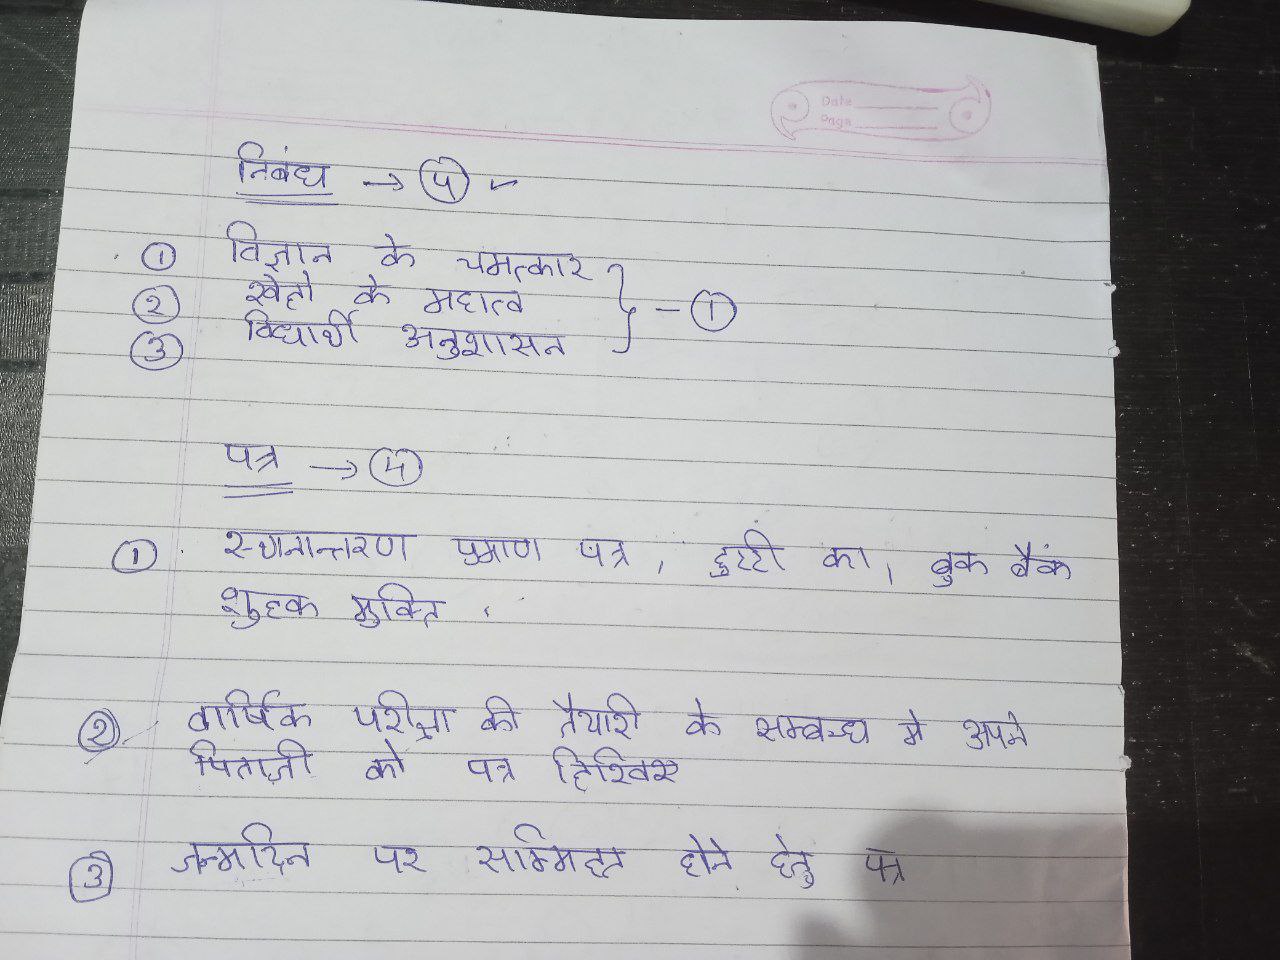 Date
Page
निबंध → ५ ✓
① विज्ञान के चमत्कार
② खेलो के महत्व } - ①
③ विद्यार्थी अनुशासन
पत्र → ५
① स्थानान्तरण प्रमाण पत्र, छुट्टी का, बुक बैंक
शुल्क मुक्ति,
② वार्षिक परीक्षा की तैयारी के सम्बन्ध मे अपने
पिताजी को पत्र लिखिए
③ जन्मदिन पर सम्मिलत होने हेतु पत्र